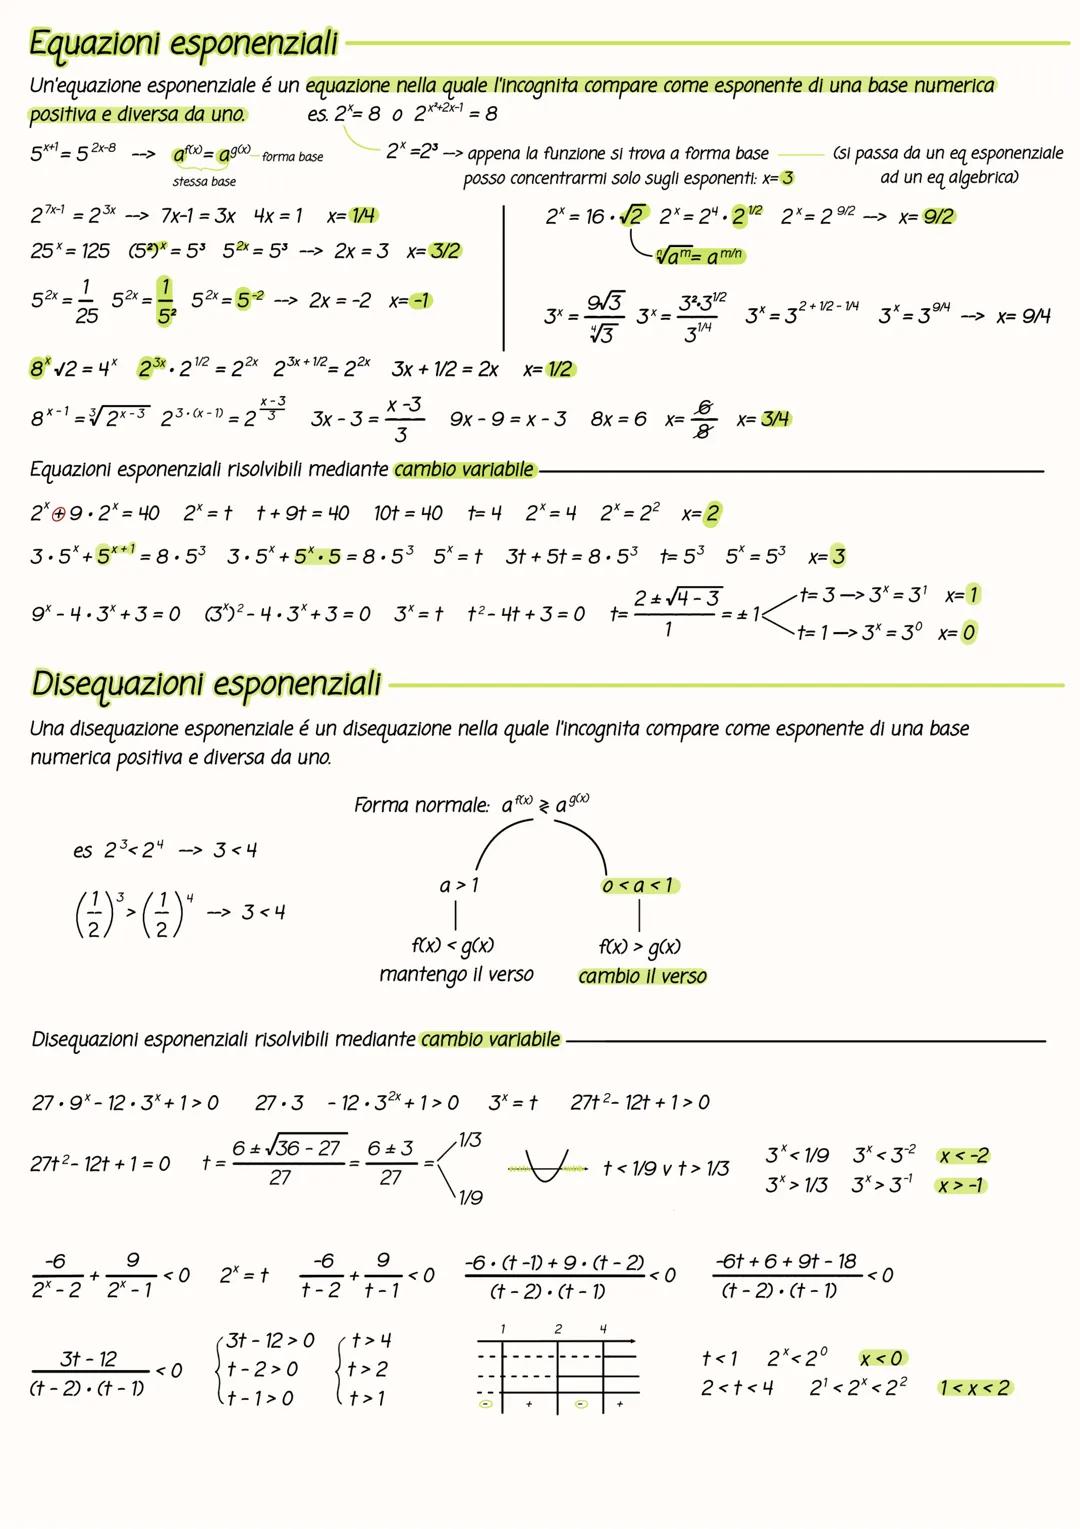 Equazioni esponenziali
Un'equazione esponenziale é un equazione nella quale l'incognita compare come esponente di una base numerica
positiva e diversa da uno. es. 2^x = 8 o 2^(x²+2x-1) = 8
5^(x+1) = 5^(2x-8) --> a^f(x) = a^g(x) forma base 2^x = 2³ --> appena la funzione si trova a forma base (si passa da un eq esponenziale
stessa base posso concentrarmi solo sugli esponenti: x= 3 ad un eq algebrica)
2^(7x-1) = 2^(3x) --> 7x-1 = 3x 4x = 1 x= 1/4
25^x = 125 (5²)^x = 5³ 5^(2x) = 5³ --> 2x = 3 x= 3/2
5^(2x) = 1/25 5^(2x) = 1/5² 5^(2x) = 5^-2 --> 2x = -2 x= -1
2^x = 16 · √2 2^x = 2⁴ · 2^(1/2) 2^x = 2^(9/2) --> x= 9/2
ⁿ√a^m = a^(m/n)
3^x = 9√3/⁴√3 3^x = 3²·3^(1/2)/3^(1/4) 3^x = 3^(2 + 1/2 - 1/4) 3^x = 3^(9/4) --> x= 9/4
8^x √2 = 4^x 2^(3x) · 2^(1/2) = 2^(2x) 2^(3x + 1/2) = 2^(2x) 3x + 1/2 = 2x x= 1/2
8^(x-1) = ³√2^(x-3) 2^(3·(x-1)) = 2^((x-3)/3) 3x - 3 = (x -3)/3 9x - 9 = x - 3 8x = 6 x= 6/8 x= 3/4
Equazioni esponenziali risolvibili mediante cambio variabile
2^x + 9 · 2^x = 40 2^x = t t + 9t = 40 10t = 40 t= 4 2^x = 4 2^x = 2² x= 2
3 · 5^x + 5^(x+1) = 8 · 5³ 3 · 5^x + 5^x · 5 = 8 · 5³ 5^x = t 3t + 5t = 8 · 5³ t= 5³ 5^x = 5³ x= 3
9^x - 4 · 3^x + 3 = 0 (3^x)² - 4 · 3^x + 3 = 0 3^x = t t² - 4t + 3 = 0 t= (2 ± √4 - 3)/1 = ± 1 t= 3 —> 3^x = 3¹ x= 1
t= 1 —> 3^x = 3⁰ x= 0
Disequazioni esponenziali
Una disequazione esponenziale é un disequazione nella quale l'incognita compare come esponente di una base
numerica positiva e diversa da uno.
Forma normale: a^f(x) ≷ a^g(x)
es 2³ < 2⁴ --> 3 < 4
a > 1 o < a < 1
(1/2)³ > (1/2)⁴ --> 3 < 4
f(x) < g(x) f(x) > g(x)
mantengo il verso cambio il verso
Disequazioni esponenziali risolvibili mediante cambio variabile
27 · 9^x - 12 · 3^x + 1 > 0 27 · 3 - 12 · 3^(2x) + 1 > 0 3^x = t 27t² - 12t + 1 > 0
27t² - 12t + 1 = 0 t = (6 ± √36 - 27)/27 = (6 ± 3)/27 = 1/3 1/9 t < 1/9 v t > 1/3
3^x < 1/9 3^x < 3^-2 x < -2
3^x > 1/3 3^x > 3^-1 x > -1
-6/(2^x - 2) + 9/(2^x - 1) < 0 2^x = t -6/(t - 2) + 9/(t - 1) < 0 (-6 · (t -1) + 9 · (t - 2))/((t - 2) · (t - 1)) < 0 (-6t + 6 + 9t - 18)/((t - 2) · (t - 1)) < 0
(3t - 12)/((t - 2) · (t - 1)) < 0
3t - 12 > 0 t > 4
t - 2 > 0 t > 2
t - 1 > 0 t > 1
1 2 4
- + - +
t < 1 2^x < 2⁰ x < 0
2 < t < 4 2¹ < 2^x < 2² 1 < x < 2